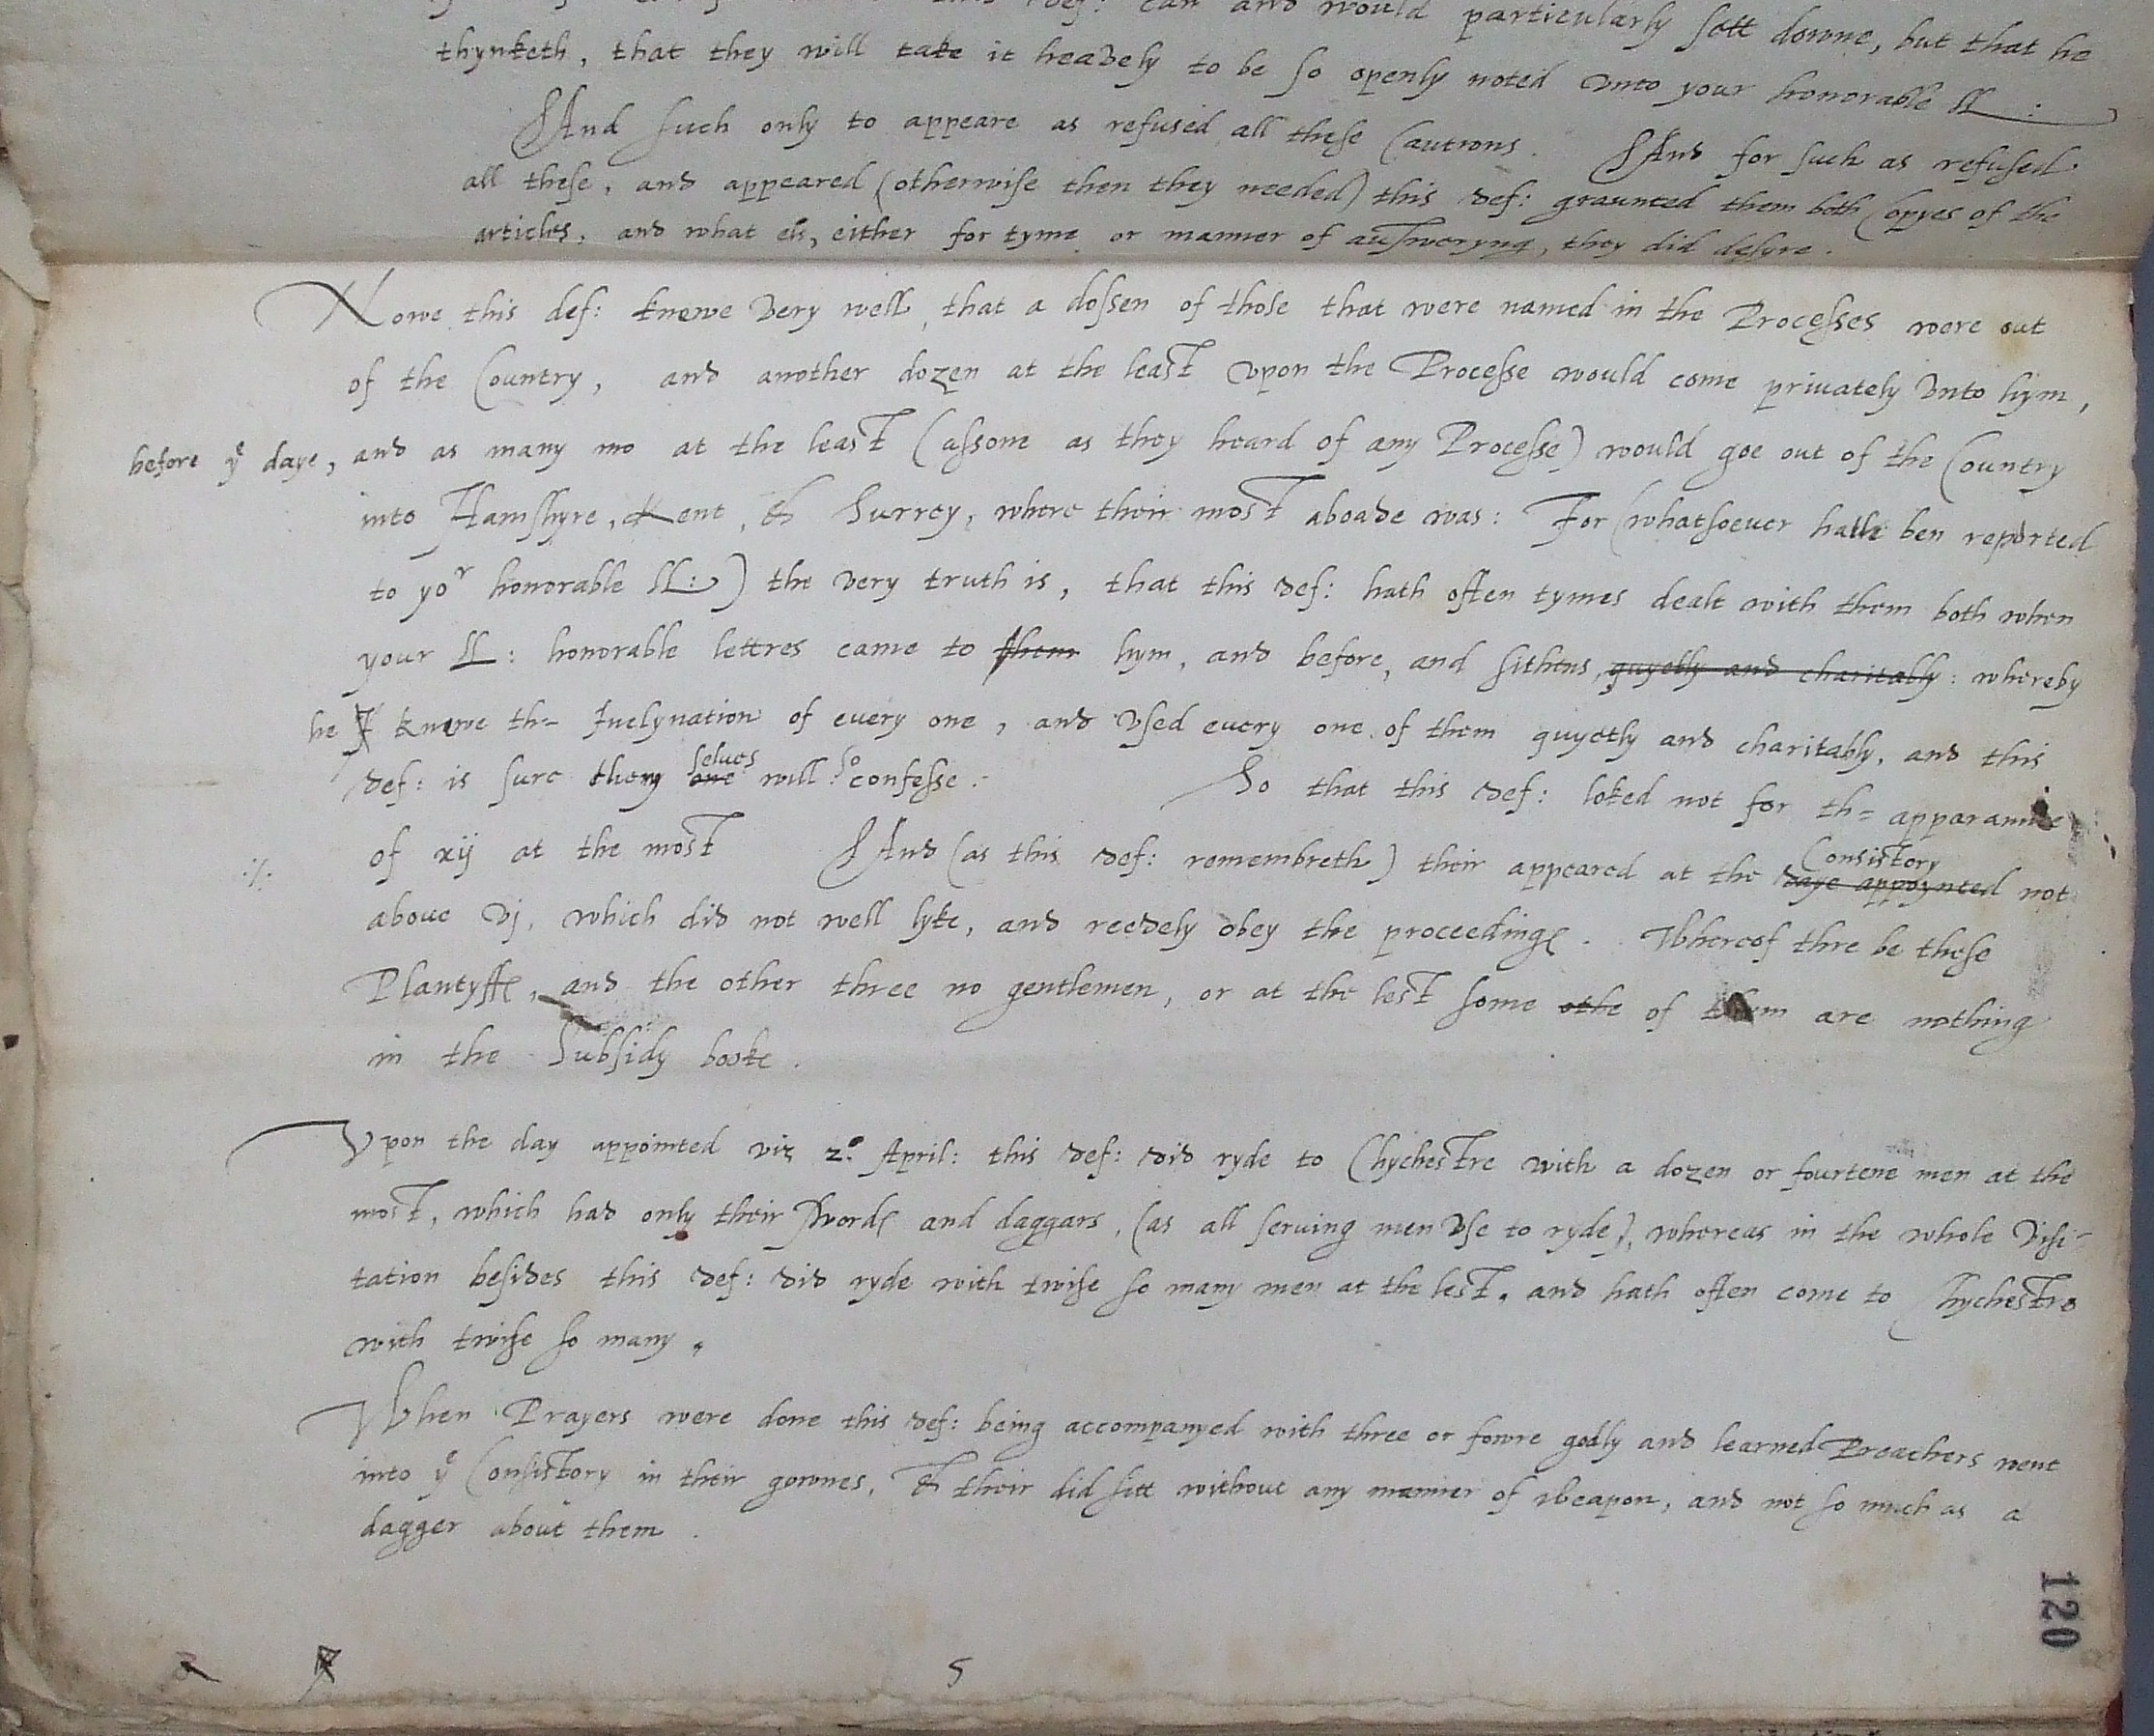 this def: can and would particularly sett downe, but that he
thynketh, that they will take it heavely to be so openly noted vnto your honorable LL:
And such only to appeare as refused all these Cautions. And for such as refused
all these, and appeared (otherwise then they needed) this def: graunted them both Copyes of the
articles, and what els, either for tyme or manner of answeryng, they did desyre.
Nowe this def: knewe very well, that a dossen of those that were named in the Processes were out
of the Country, and another dozen at the least vpon the Processe would come privately vnto hym,
before yͤ daye, and as many mo at the least (assone as they heard of any Processe) would goe out of the Country
into Hamshyre, Kent, & Surrey, where their most aboade was: For (whatsoeuer hathe ben reported
to yoʳ honorable LL:) the very truth is, that this def: hath often tymes dealt with them both when
your LL: honorable lettres came to them hym, and before, and sithens, quyetly and charitably: whereby
he I knewe th= Inclynation of euery one, and vsed euery one of them quyetly and charitably, and this
selues so
def: is sure they one will confesse. So that this def: loked not for th= apparance
Consistory
of xij at the most And (as this def: remembreth) their appeared at the daye appoynted not
aboue vj, which did not well lyke, and reedely obey the proceedings. Whereof thre be these
Plantyffes, and the other three no gentlemen, or at the lest some othe of them are nothing
in the Subsidy booke.
Vpon the day appointed viz 2º April: this def: did ryde to Chychestre with a dozen or fourtene men at the
most, which had only their swordes and daggars, (as all seruing men vse to ryde), whereas in the whole Visi-
tation besides this def: did ryde with twise so many men at the lest, and hath often come to Chychestre
with twise so many.
When Prayers were done this def: being accompanyed with three or fowre godly and learned Preachers went
into yͤ Consistory in their gownes, & their did sitt without any manner of weapon, and not so much as a
dagger about them.
120
5